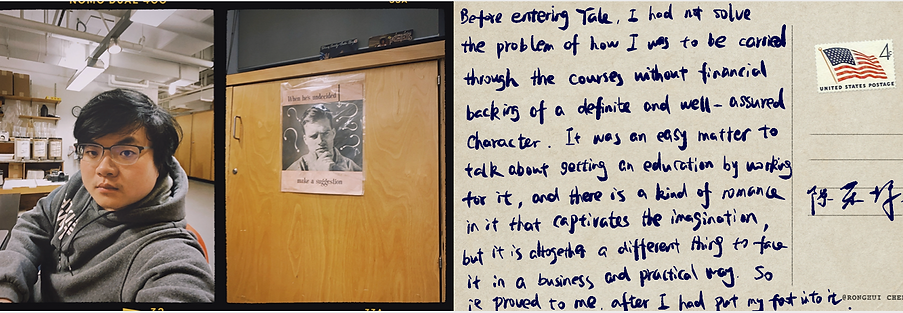 NOMO DUAL 400
33A
When he's undecided
make a suggestion
32
33A
Before entering Yale, I had not solve
the problem of how I was to be carried
through the courses without financial
backing of a definite and well-assured
character. It was an easy matter to
talk about getting an education by working
for it, and there is a kind of romance
in it that captivates the imagination,
but it is altogether a different thing to face
it in a business and practical way. So
it proved to me, after I had put my foot into it.
4c
UNITED STATES POSTAGE
@RONGHUI CHE